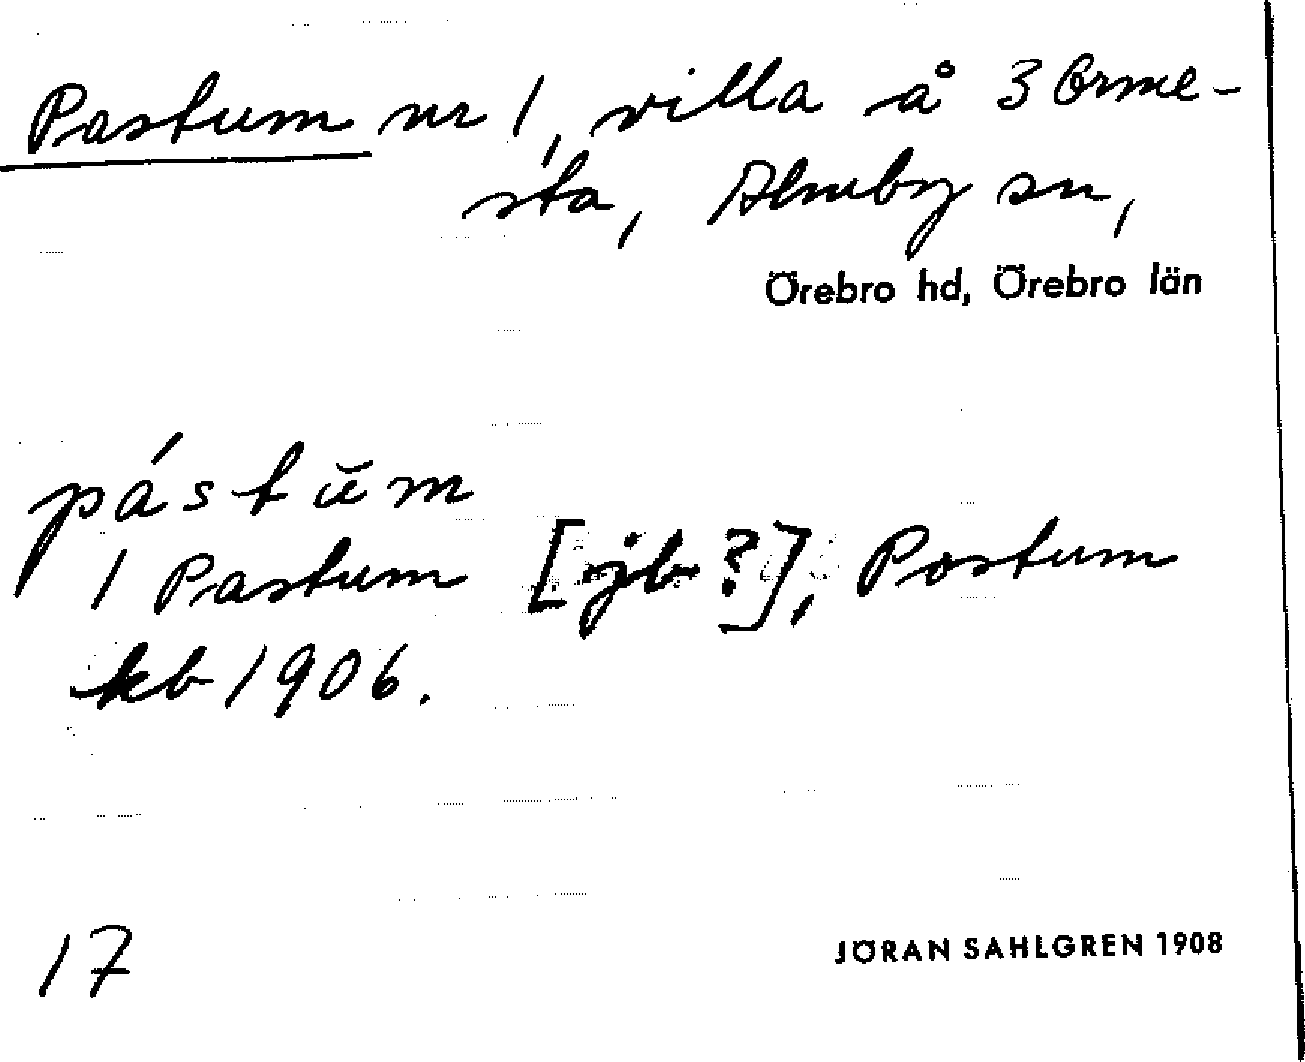 Pastum nr 1, villa å 3 Orme-
sta, Almby sn,
Örebro hd, Örebro län
pástŭm
1 Pastum [jb?], Postum
kb 1906.
17
JÖRAN SAHLGREN 1908